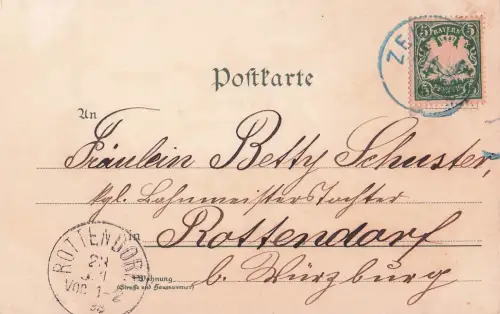 5 BAYERN 5
ZE
Postkarte
An
Fräulein Betty Schuster,
kgl. Bahnmeisters Tochter
in
Rottendorf
b. Würzburg
Wohnung
(Straße und Hausnummer)
ROTTENDORF
28
VOR. 1-2
98